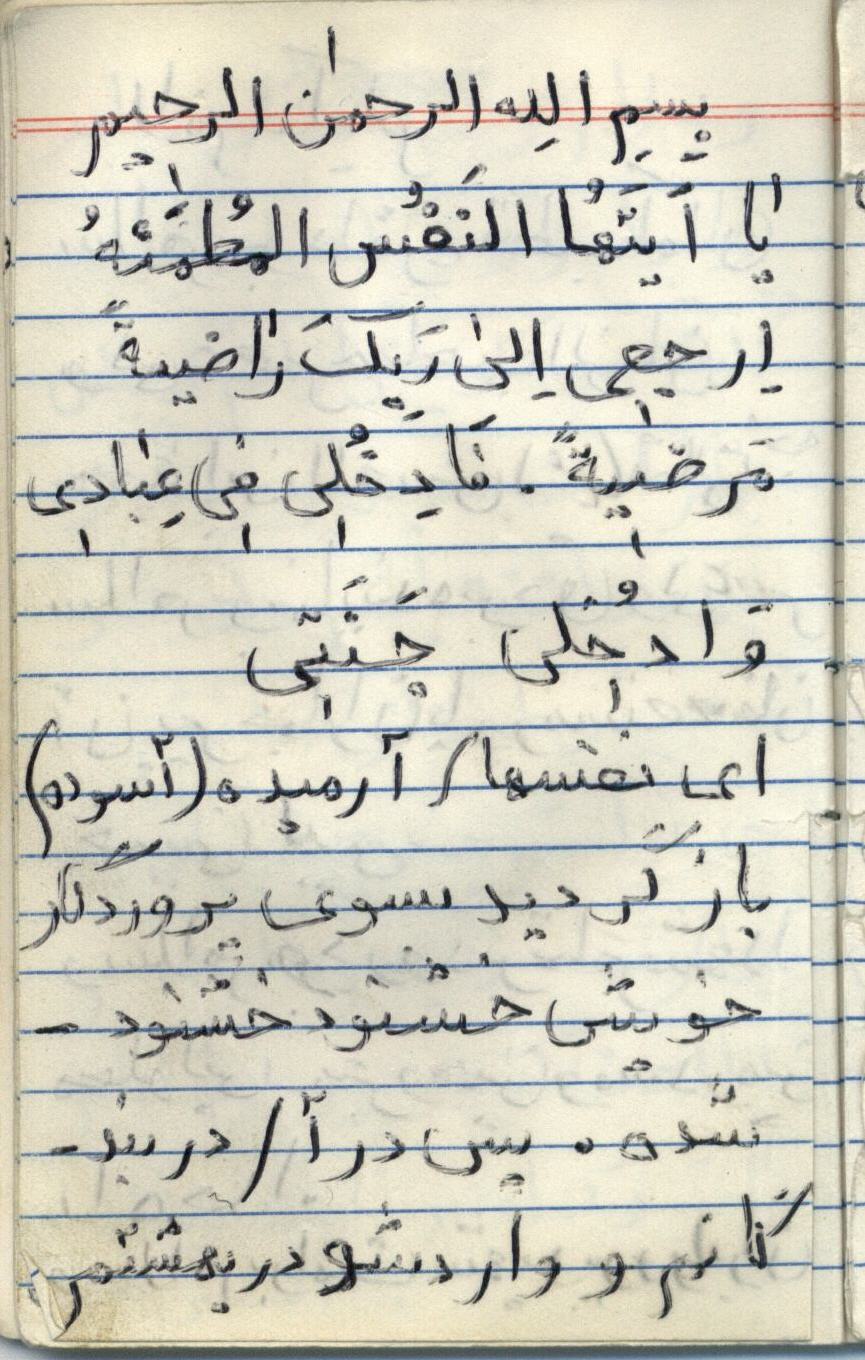 بِسمِ اللهِ الرحمٰنِ الرحیمِ
یٰا اَیَتُّهَا النَفْسُ المُطمَئنَّهُ
اِرجِعی اِلیٰ رَبِّکَ رٰاضیةً
مَرضیةً . فَادِخُلی فی عِبٰادی
وَادخُلی جَنَتَّی
ای نفسها / آرمیده (آسوده)
بازگردید بسوی پروردگار
خویش خشنود خشنود -
شده . پس درآ / در بند -
گانم و وارد شو در بهشتم